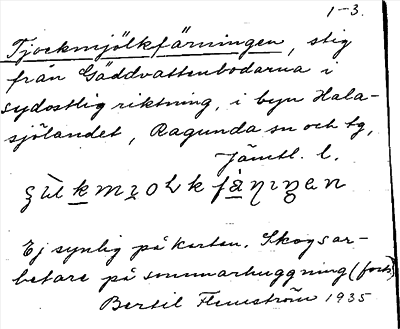 1-3.
Tjockmjölkfärningen, stig
från Gäddvattenbodarna i
sydostlig riktning, i byn Hala-
sjölandet, Ragunda sn och tg,
Jämtl. l.
Ej synlig på kartan. Skogsar-
betare på sommarhuggning (forts)
Bertil Flemström 1935